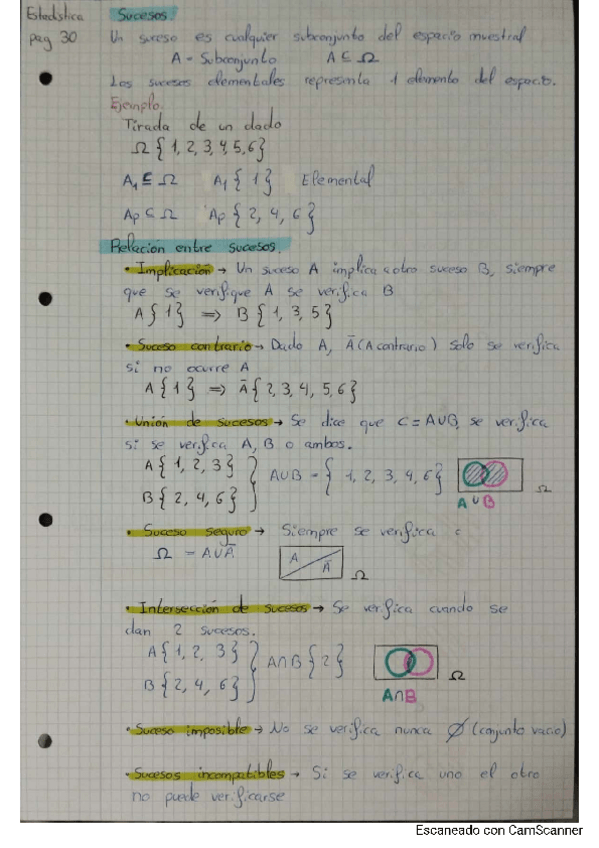 Estadística
pag 30
Sucesos.
Un suceso es cualquier subconjunto del espacio muestral
A = Subconjunto A ⊆ Ω
Los sucesos elementales representa 1 elemento del espacio.
Ejemplo.
Tirada de un dado
Ω { 1, 2, 3, 4, 5, 6 }
A₁ ⊆ Ω A₁ { 1 } Elemental
Ap ⊆ Ω Ap { 2, 4, 6 }
Relación entre sucesos.
• Implicación → Un suceso A implica a otro suceso B, siempre
que se verifique A se verifica B
A { 1 } ⇒ B { 1, 3, 5 }
• Suceso contrario → Dado A, Ā (A contrario) solo se verifica
si no ocurre A
A { 1 } ⇒ Ā { 2, 3, 4, 5, 6 }
• Unión de sucesos → Se dice que C = A∪B, se verifica
si se verifica A, B o ambos.
A { 1, 2, 3 }
B { 2, 4, 6 }
A∪B = { 1, 2, 3, 4, 6 }
Ω
A ∪ B
• Suceso seguro → Siempre se verifica
Ω = A∪Ā
A
Ā
Ω
• Intersección de sucesos → Se verifica cuando se
dan 2 sucesos.
A { 1, 2, 3 }
B { 2, 4, 6 }
A∩B { 2 }
Ω
A∩B
• Suceso imposible → No se verifica nunca ∅ (conjunto vacio)
• Sucesos incompatibles → Si se verifica uno el otro
no puede verificarse
Escaneado con CamScanner